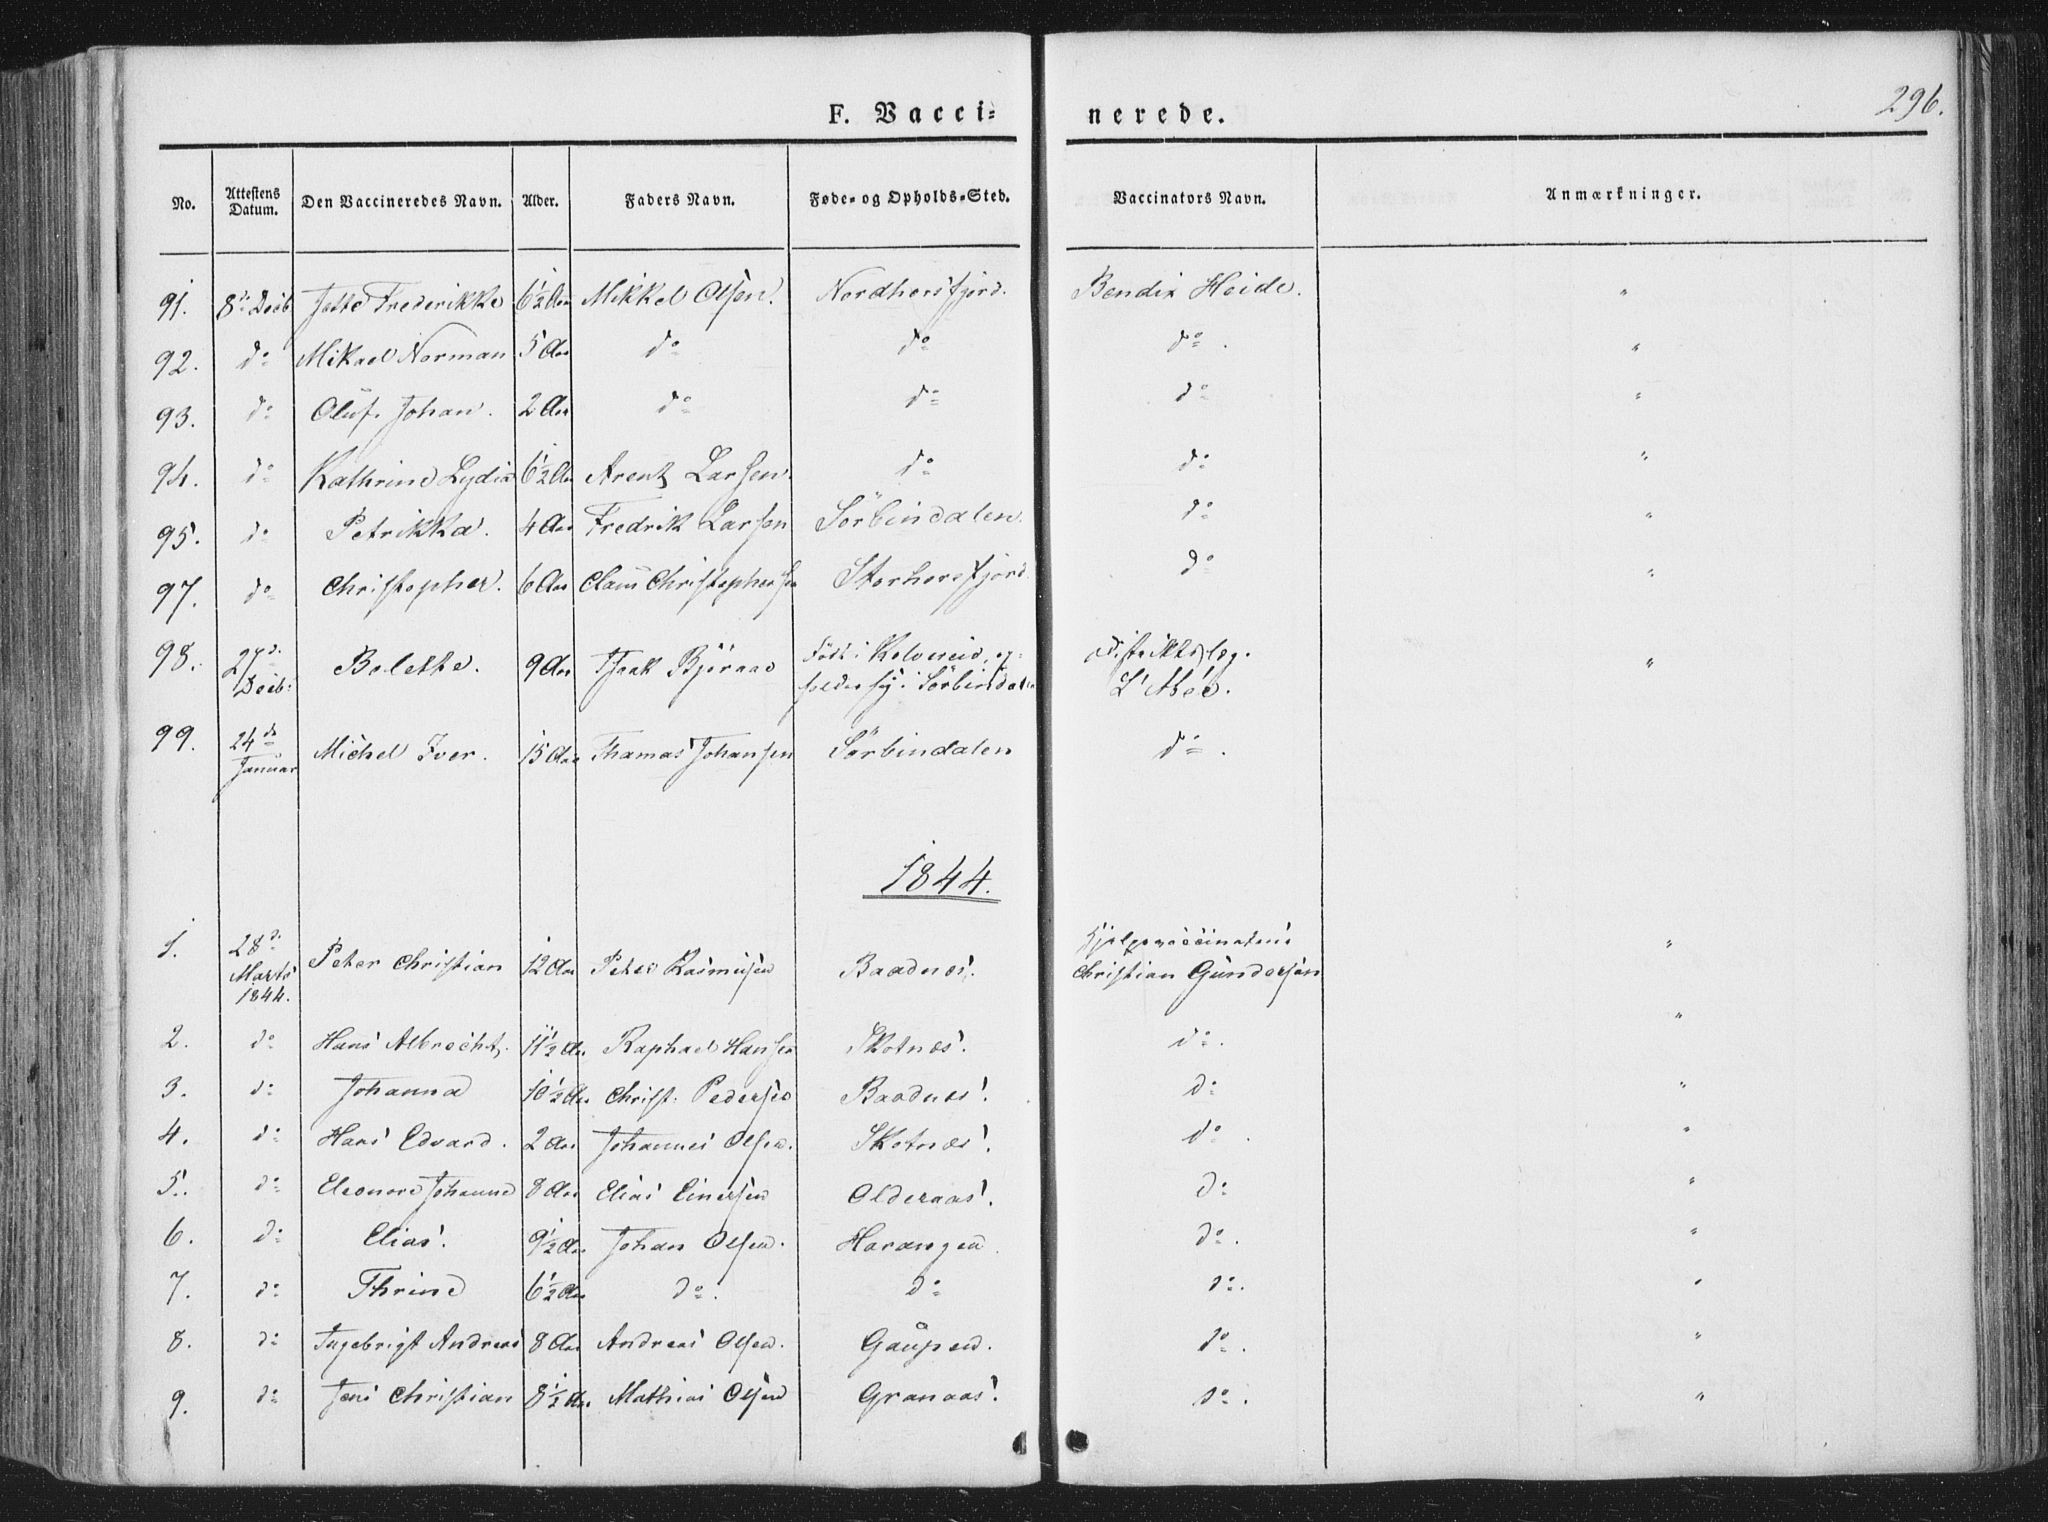 296.
F. Vaccinerede.
No. | Attestens Datum. | Den Vaccineredes Navn. | Alder. | Faders Navn. | Føde- og Opholds-Sted. | Vaccinators Navn. | Anmærkninger.
91. | 8de Decb | Jette Frederikke | 6½ Aar | Mikkel Olsen. | Nordhorsfjord. | Bendix Heide. | "
92. | do | Mikael Norman | 5 Aar | do | do | do. | "
93. | do | Oluf Johan. | 2 Aar | do | do | do | "
94. | do | Kathrine Lydia | 6½ Aar | Arent Larsen. | do | do | "
95. | do | Petrikka. | 4 Aar | Fredrik Larsen | Sörbindalen. | do | "
97. | do | Christopher. | 6 Aar | Claus Christophersen | Storhorsfjord | do | "
98. | 27de Decb: | Bolette. | 9 Aar | Isak Björaas | Födt i Kolvereid, op-
holder sig i Sörbindalen | Distriktslæg.
L'Abée. | "
99. | 24de Januar | Michel Iver. | 15 Aar | Thomas Johansen | Sörbindalen | do. |
1844.
1. | 28de Marts 1844. | Peter Christian | 12 Aar | Peter Rasmusen | Baadnes. | Hjelpevaccinateur
Christian Gundersen | "
2. | do | Hans Albrecht. | 11½ Aar | Raphael Hansen | Skotnes. | do. | "
3. | do | Johanna | 10½ Aar | Christ: Pedersen | Baadnes. | do | "
4. | do | Hans Edvard. | 2 Aar | Johannes Olsen. | Skotnes. | do. | "
5. | do | Eleonore Johanne | 8 Aar | Elias Einersen | Olderaas. | do | "
6. | do | Elias. | 9½ Aar | Johan Olsen. | Horangen. | do. | "
7. | do | Thrine | 6½ Aar | do. | do | do. | "
8. | do | Ingebrigt Andreas | 8 Aar | Andreas Olsen. | Gaupen. | do. | "
9. | do | Jens Christian | 8½ Aar | Mathias Olsen | Granaas. | do. | "